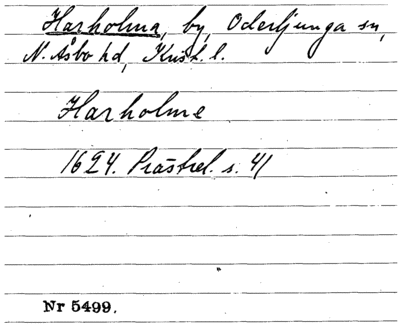 Harholma, by, Oderljunga sn,
N. Åsbo hd, Krist. l.
Harholme
1624. Prästrel. s. 41
Nr 5499.